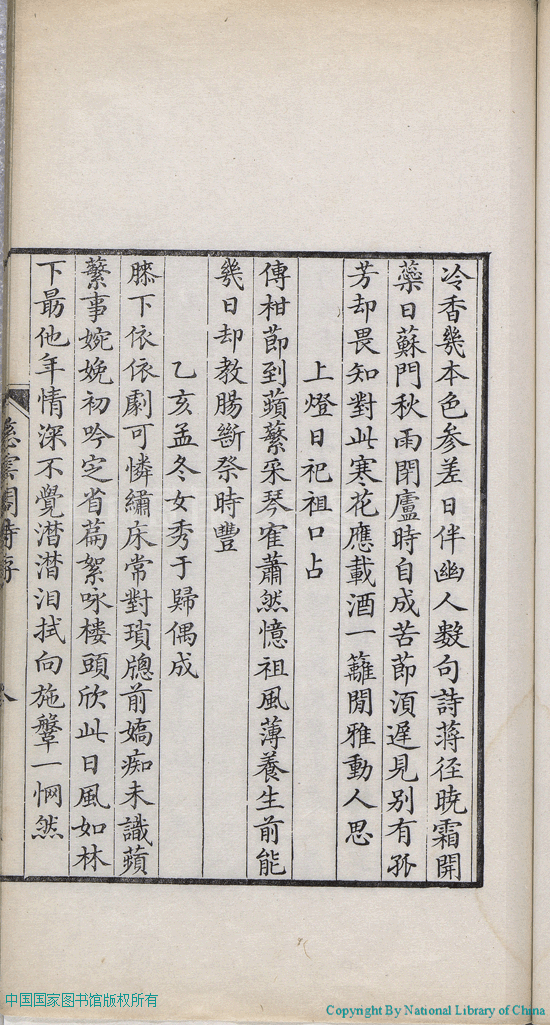 冷香幾本色参差日伴幽人數句詩蔣径曉霜開
蘂日蘇門秋雨閉廬時自成苦節湏遲見别有孤
芳却畏知對此寒花應載酒一籬閒雅動人思
上燈日祀祖口占
傳柑節到蘋蘩采琴寉蕭然憶祖風薄養生前能
幾日却教腸斷祭時豐
乙亥孟冬女秀于歸偶成
膝下依依劇可憐繡床常對瑣牕前嬌痴未識蘋
蘩事婉娩初吟定省萹絮咏楼頭欣此日風如林
下最他年情深不覺潸潸泪拭向施鞶一惘然
中国国家图书馆版权所有
Copyright By National Library of China